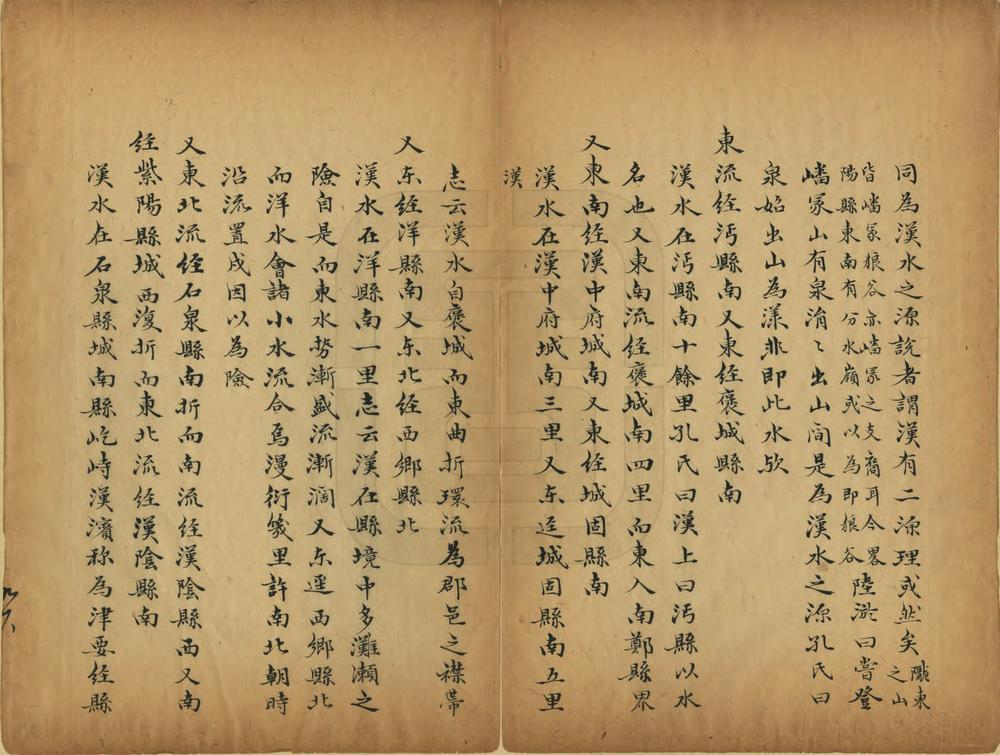 同為漢水之源說者謂漢有二源理或然矣隴東之山
皆嶓冢狼谷亦嶓冢之支裔耳今畧
陽縣東南有分水嶺或以為即狼谷陸游曰嘗登
嶓冢山有泉涓〻出山間是為漢水之源孔氏曰
泉始出山為漾非即此水歟
東流經沔縣南又東經褒城縣南
漢水在沔縣南十餘里孔氏曰漢上曰沔縣以水
名也又東南流經褒城南四里而東入南鄭縣界
又東南經漢中府城南又東經城固縣南
漢水在漢中府城南三里又东逕城固縣南五里
漢
志云漢水自褒城而東曲折環流為郡邑之襟帶
又东經洋縣南又东北經西鄉縣北
漢水在洋縣南一里志云漢在縣境中多灘瀨之
險自是而東水势漸盛流漸濶又东逕西鄉縣北
而洋水會諸小水流合焉漫衍幾里許南北朝時
沿流置戍因以為險
又東北流經石泉縣南折而南流經漢陰縣西又南
經紫陽縣城西復折而東北流經漢陰縣南
漢水在石泉縣城南縣屹峙漢濱称為津要經縣